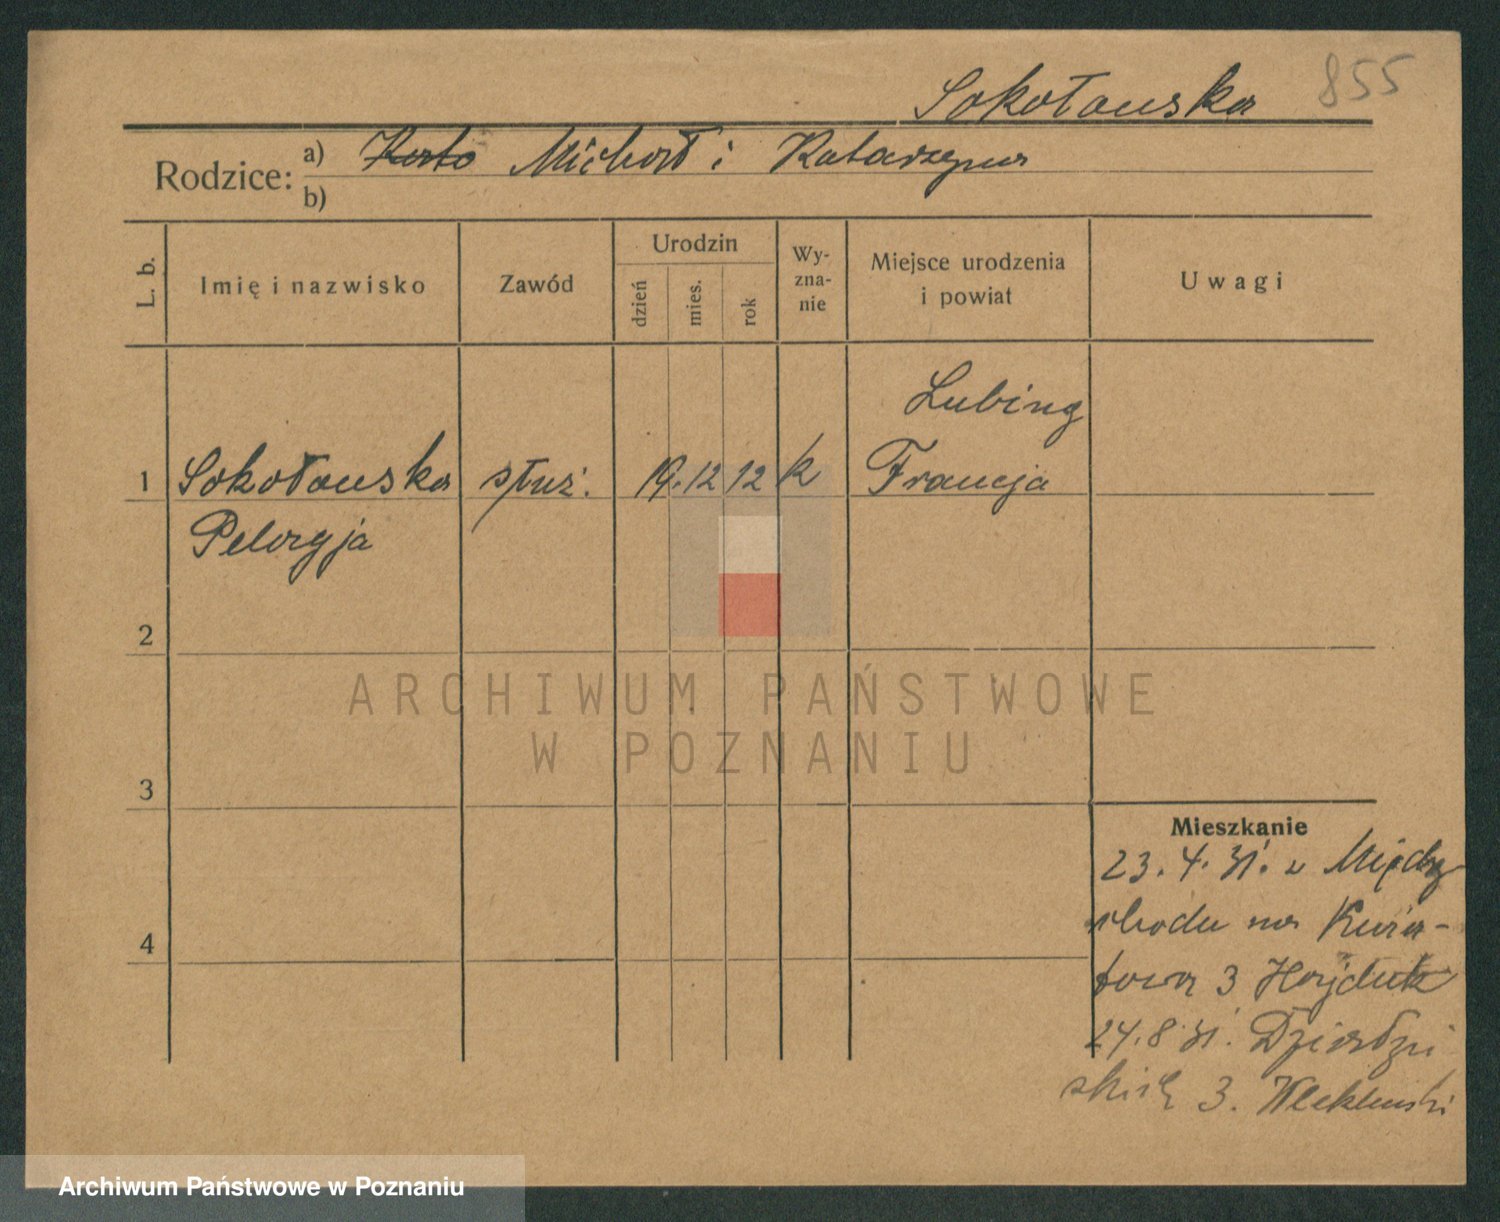 855
Sokołowska
Rodzice: a) Michał i Katarzyna
b)
L. b.
Imię i nazwisko
Zawód
Urodzin
dzień
mies.
rok
Wy-
zna-
nie
Miejsce urodzenia
i powiat
Uwagi
Lubing
1 Sokołowska służ. 19. 12 12 k Francja
Pelagja
2
3
4
ARCHIWUM PAŃSTWOWE
W POZNANIU
Mieszkanie
23. 4. 31. z Między
chodu na Kwia-
towa 3 Hajduk
24. 8 31.
3.
Archiwum Państwowe w Poznaniu